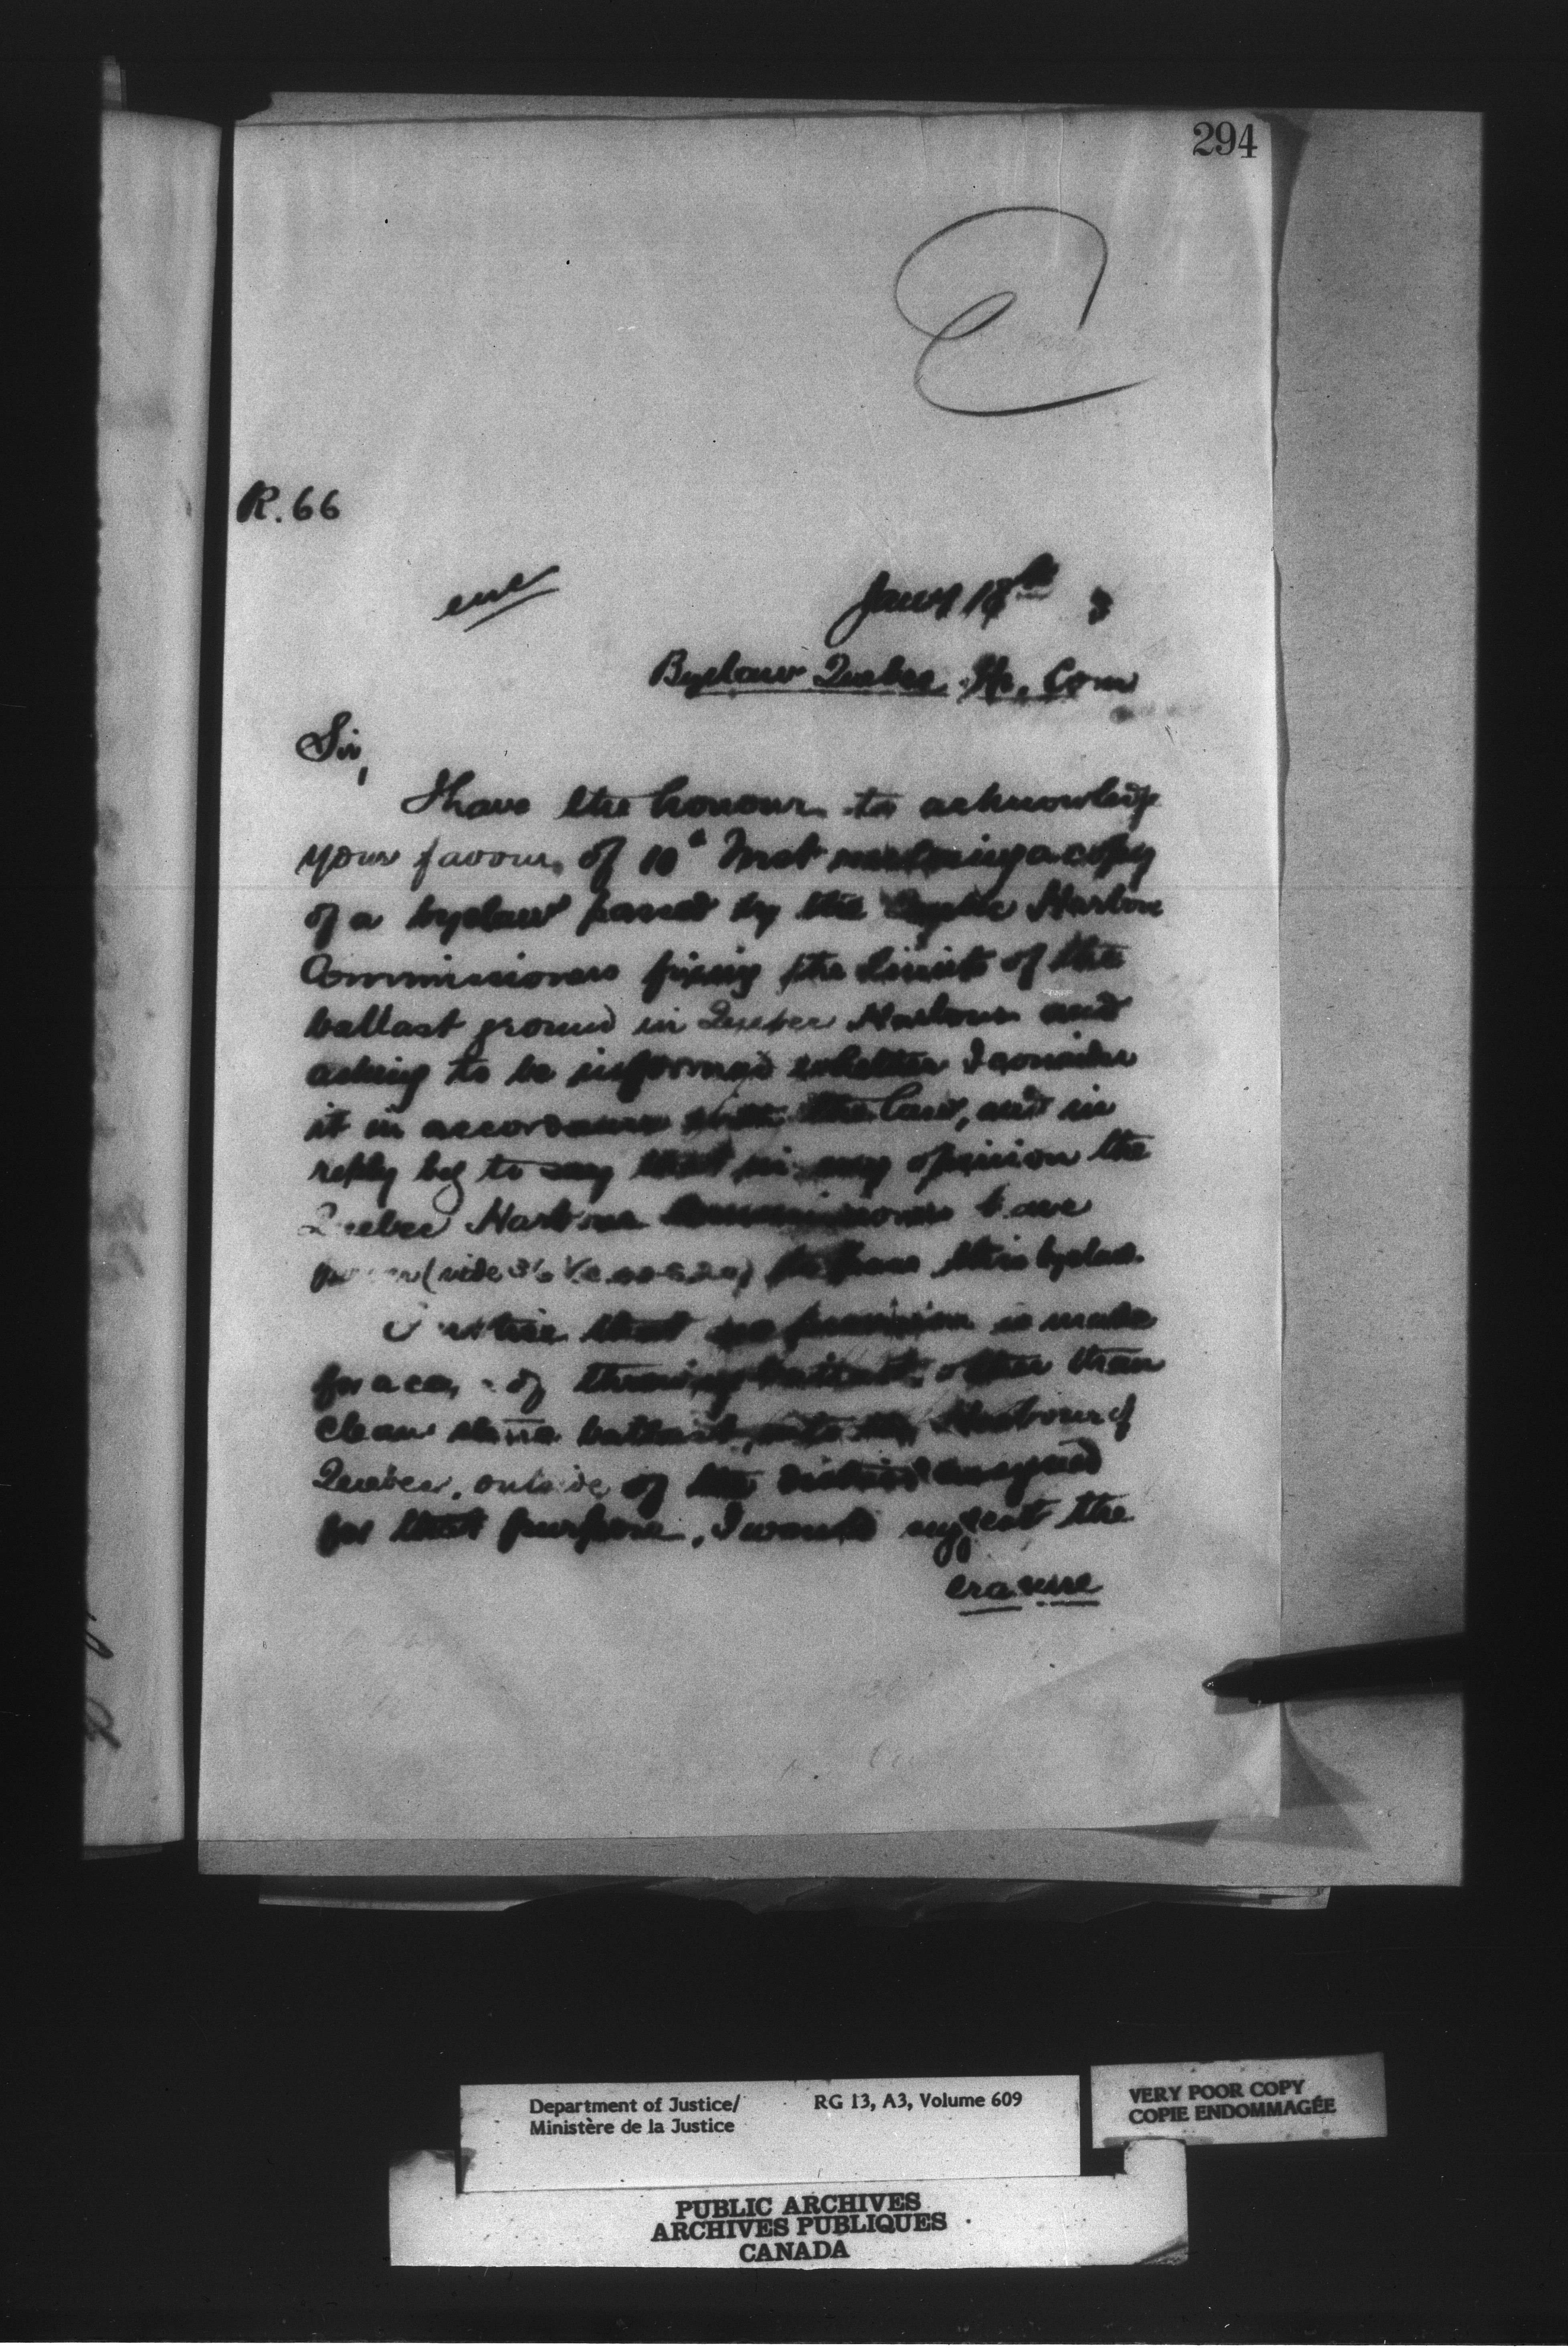 294
R. 66
encl
Jany 18th 3
Byelaw Quebec Hr. Com
Sir,
I have the honour to acknowledge
your favour of 10th Inst enclosing a copy
of a byelaw passed by the Harbour
Commissioners fixing the limits of the
ballast ground in Quebec Harbour and
asking to be informed whether I consider
it in accordance with the law, and in
reply beg to say that in my opinion the
Quebec Harbour Commissioners have
power (vide 36 Vic to pass this byelaw.
I notice that no provision is made
for a case of throwing ballast, other than
clean stone ballast, into the Harbour of
Quebec, outside of the district assigned
for that purpose, I would suggest the
erasure
Department of Justice/ RG 13, A3, Volume 609
Ministère de la Justice
VERY POOR COPY
COPIE ENDOMMAGÉE
PUBLIC ARCHIVES
ARCHIVES PUBLIQUES
CANADA